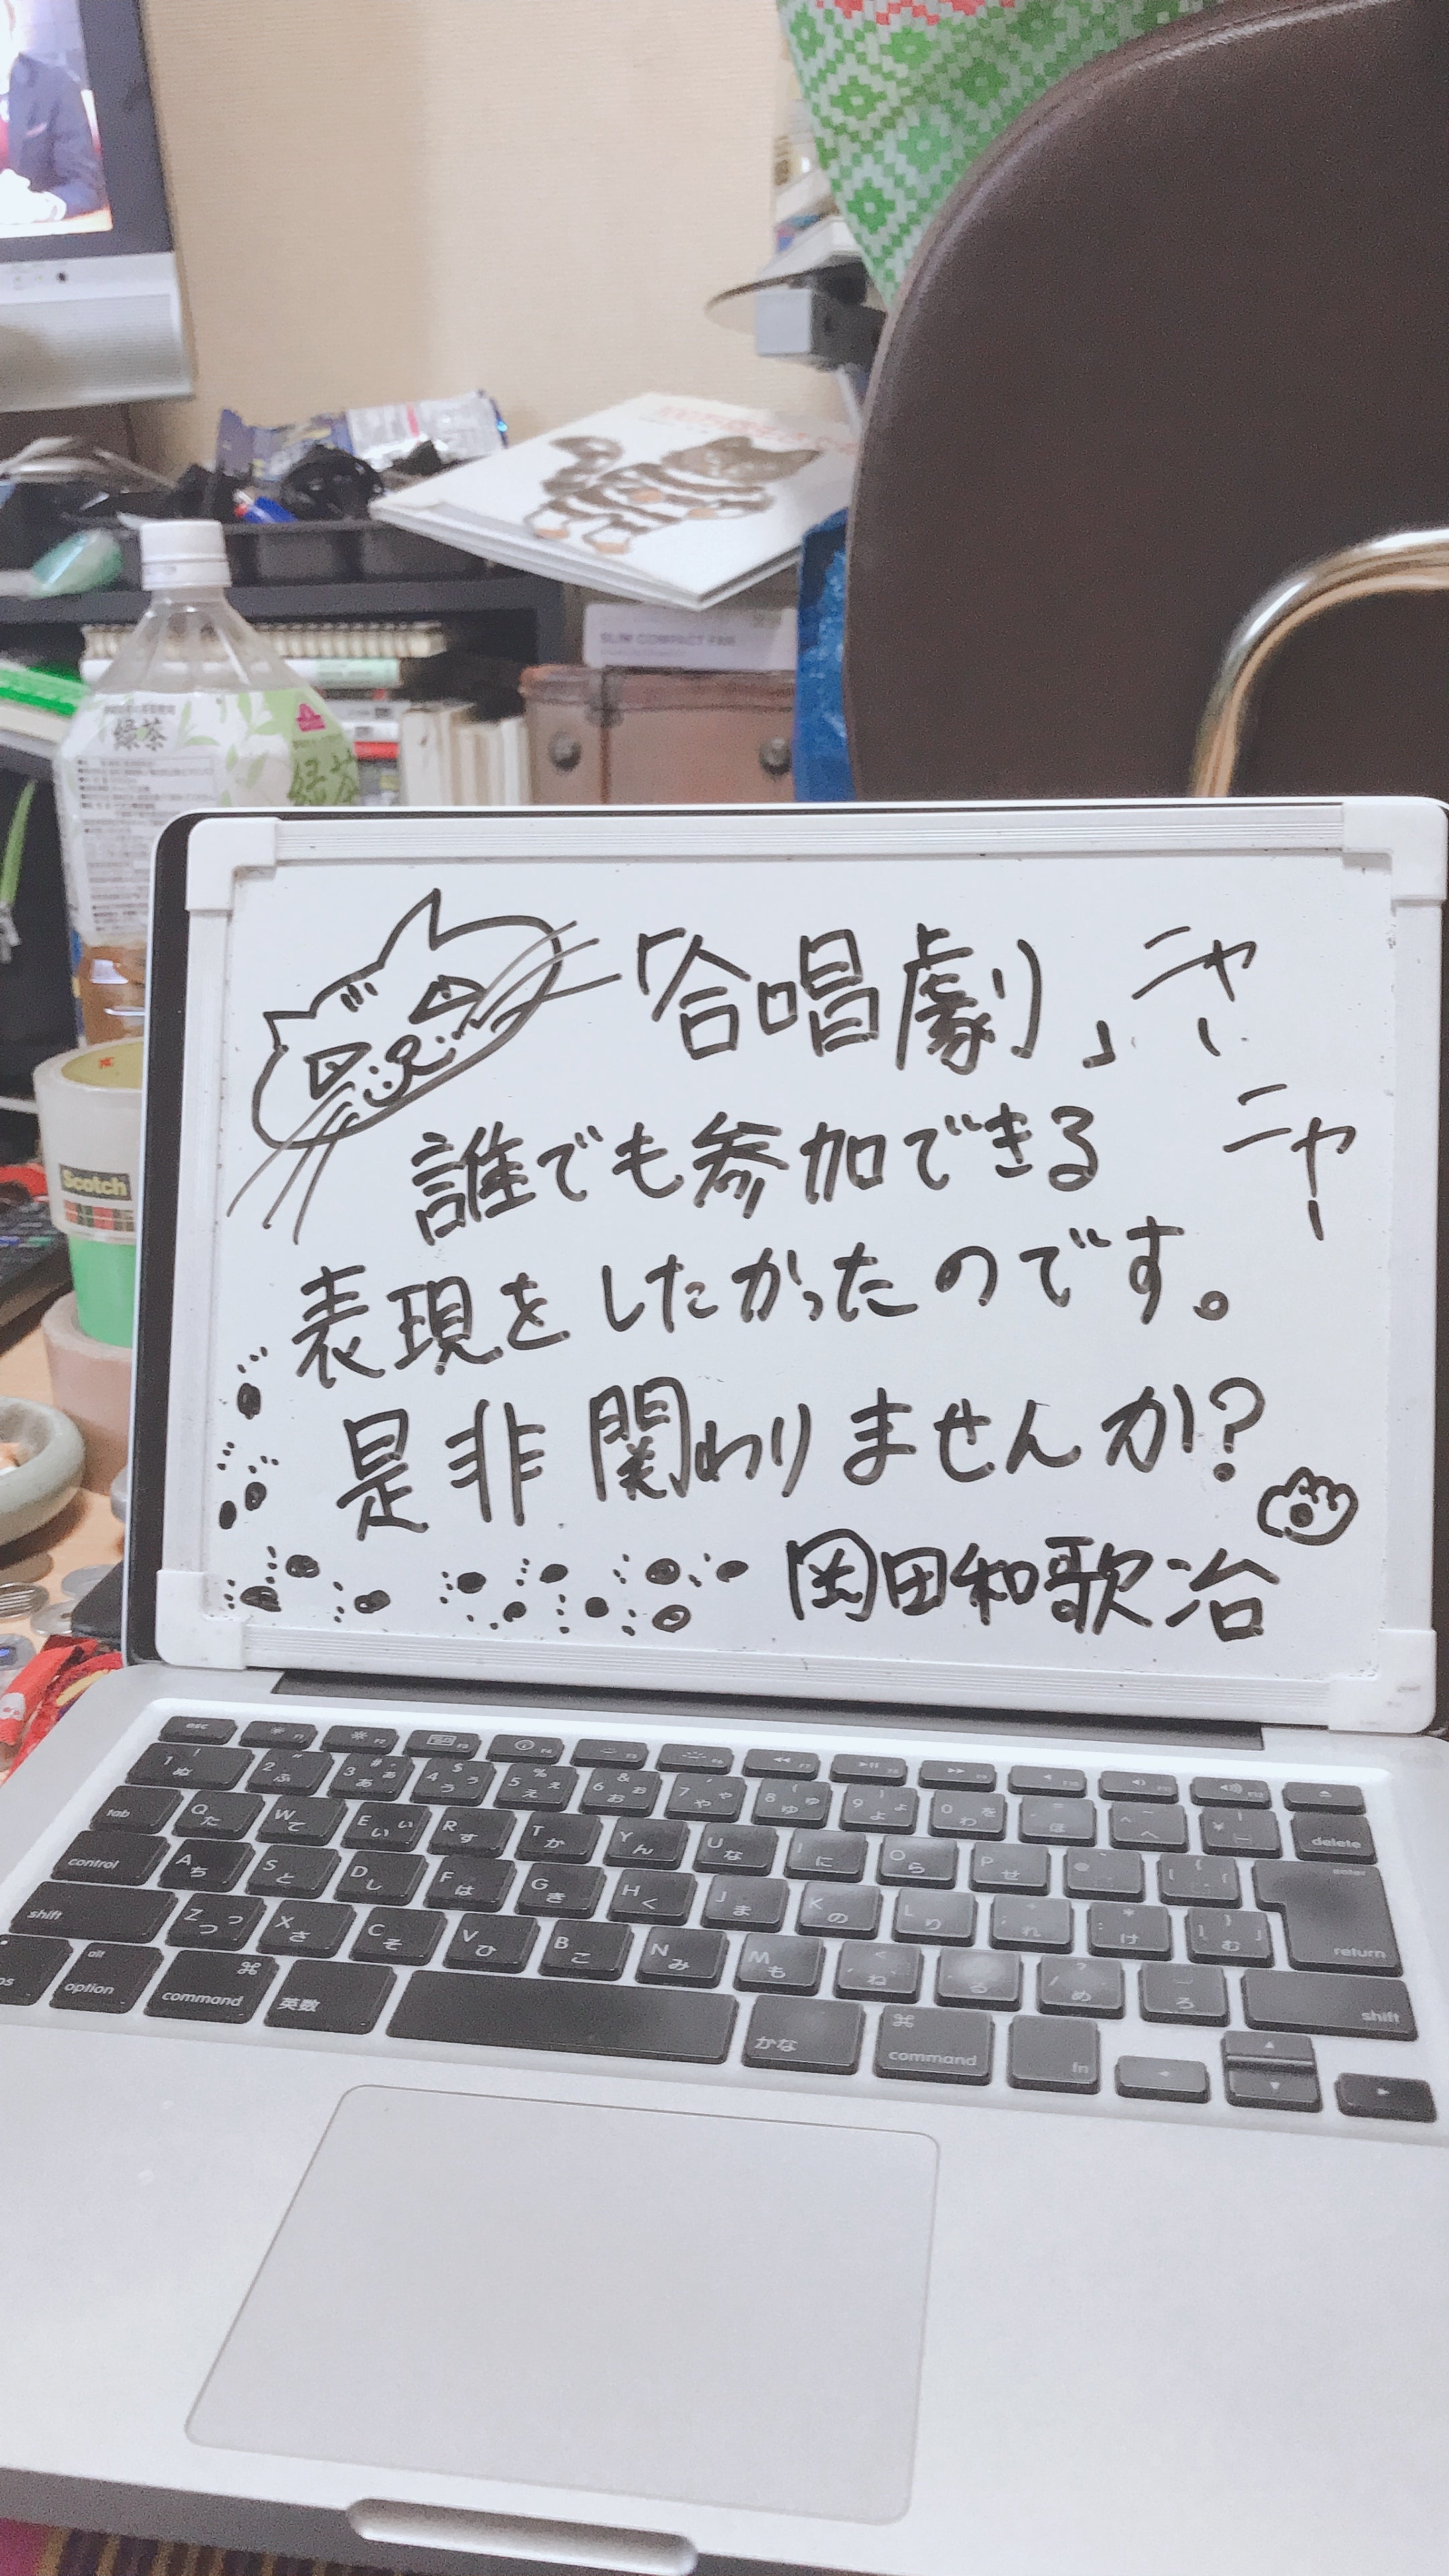 緑茶
緑茶
SLIM COMPACT FAN
Scotch
「合唱劇」ニャー
ニャー
誰でも参加できる
表現をしたかったのです。
是非関わりませんか?
岡田和歌治
esc
1 ! ぬ 2 " ふ 3 # あ ぁ 4 $ う ぅ 5 % え ぇ 6 & お ぉ 7 ' や ゃ 8 ( ゆ ゅ 9 ) よ ょ 0 わ を ほ へ ¥ delete
tab Q た W て E い ぃ R す T か Y ん U な I に O ら P せ enter
control A ち S と D し F は G き H く J ま K の L り れ け む return
shift Z つ っ X さ C そ V ひ B こ N み M も ね る め ろ shift
alt option ⌘ command 英数 かな ⌘ command fn